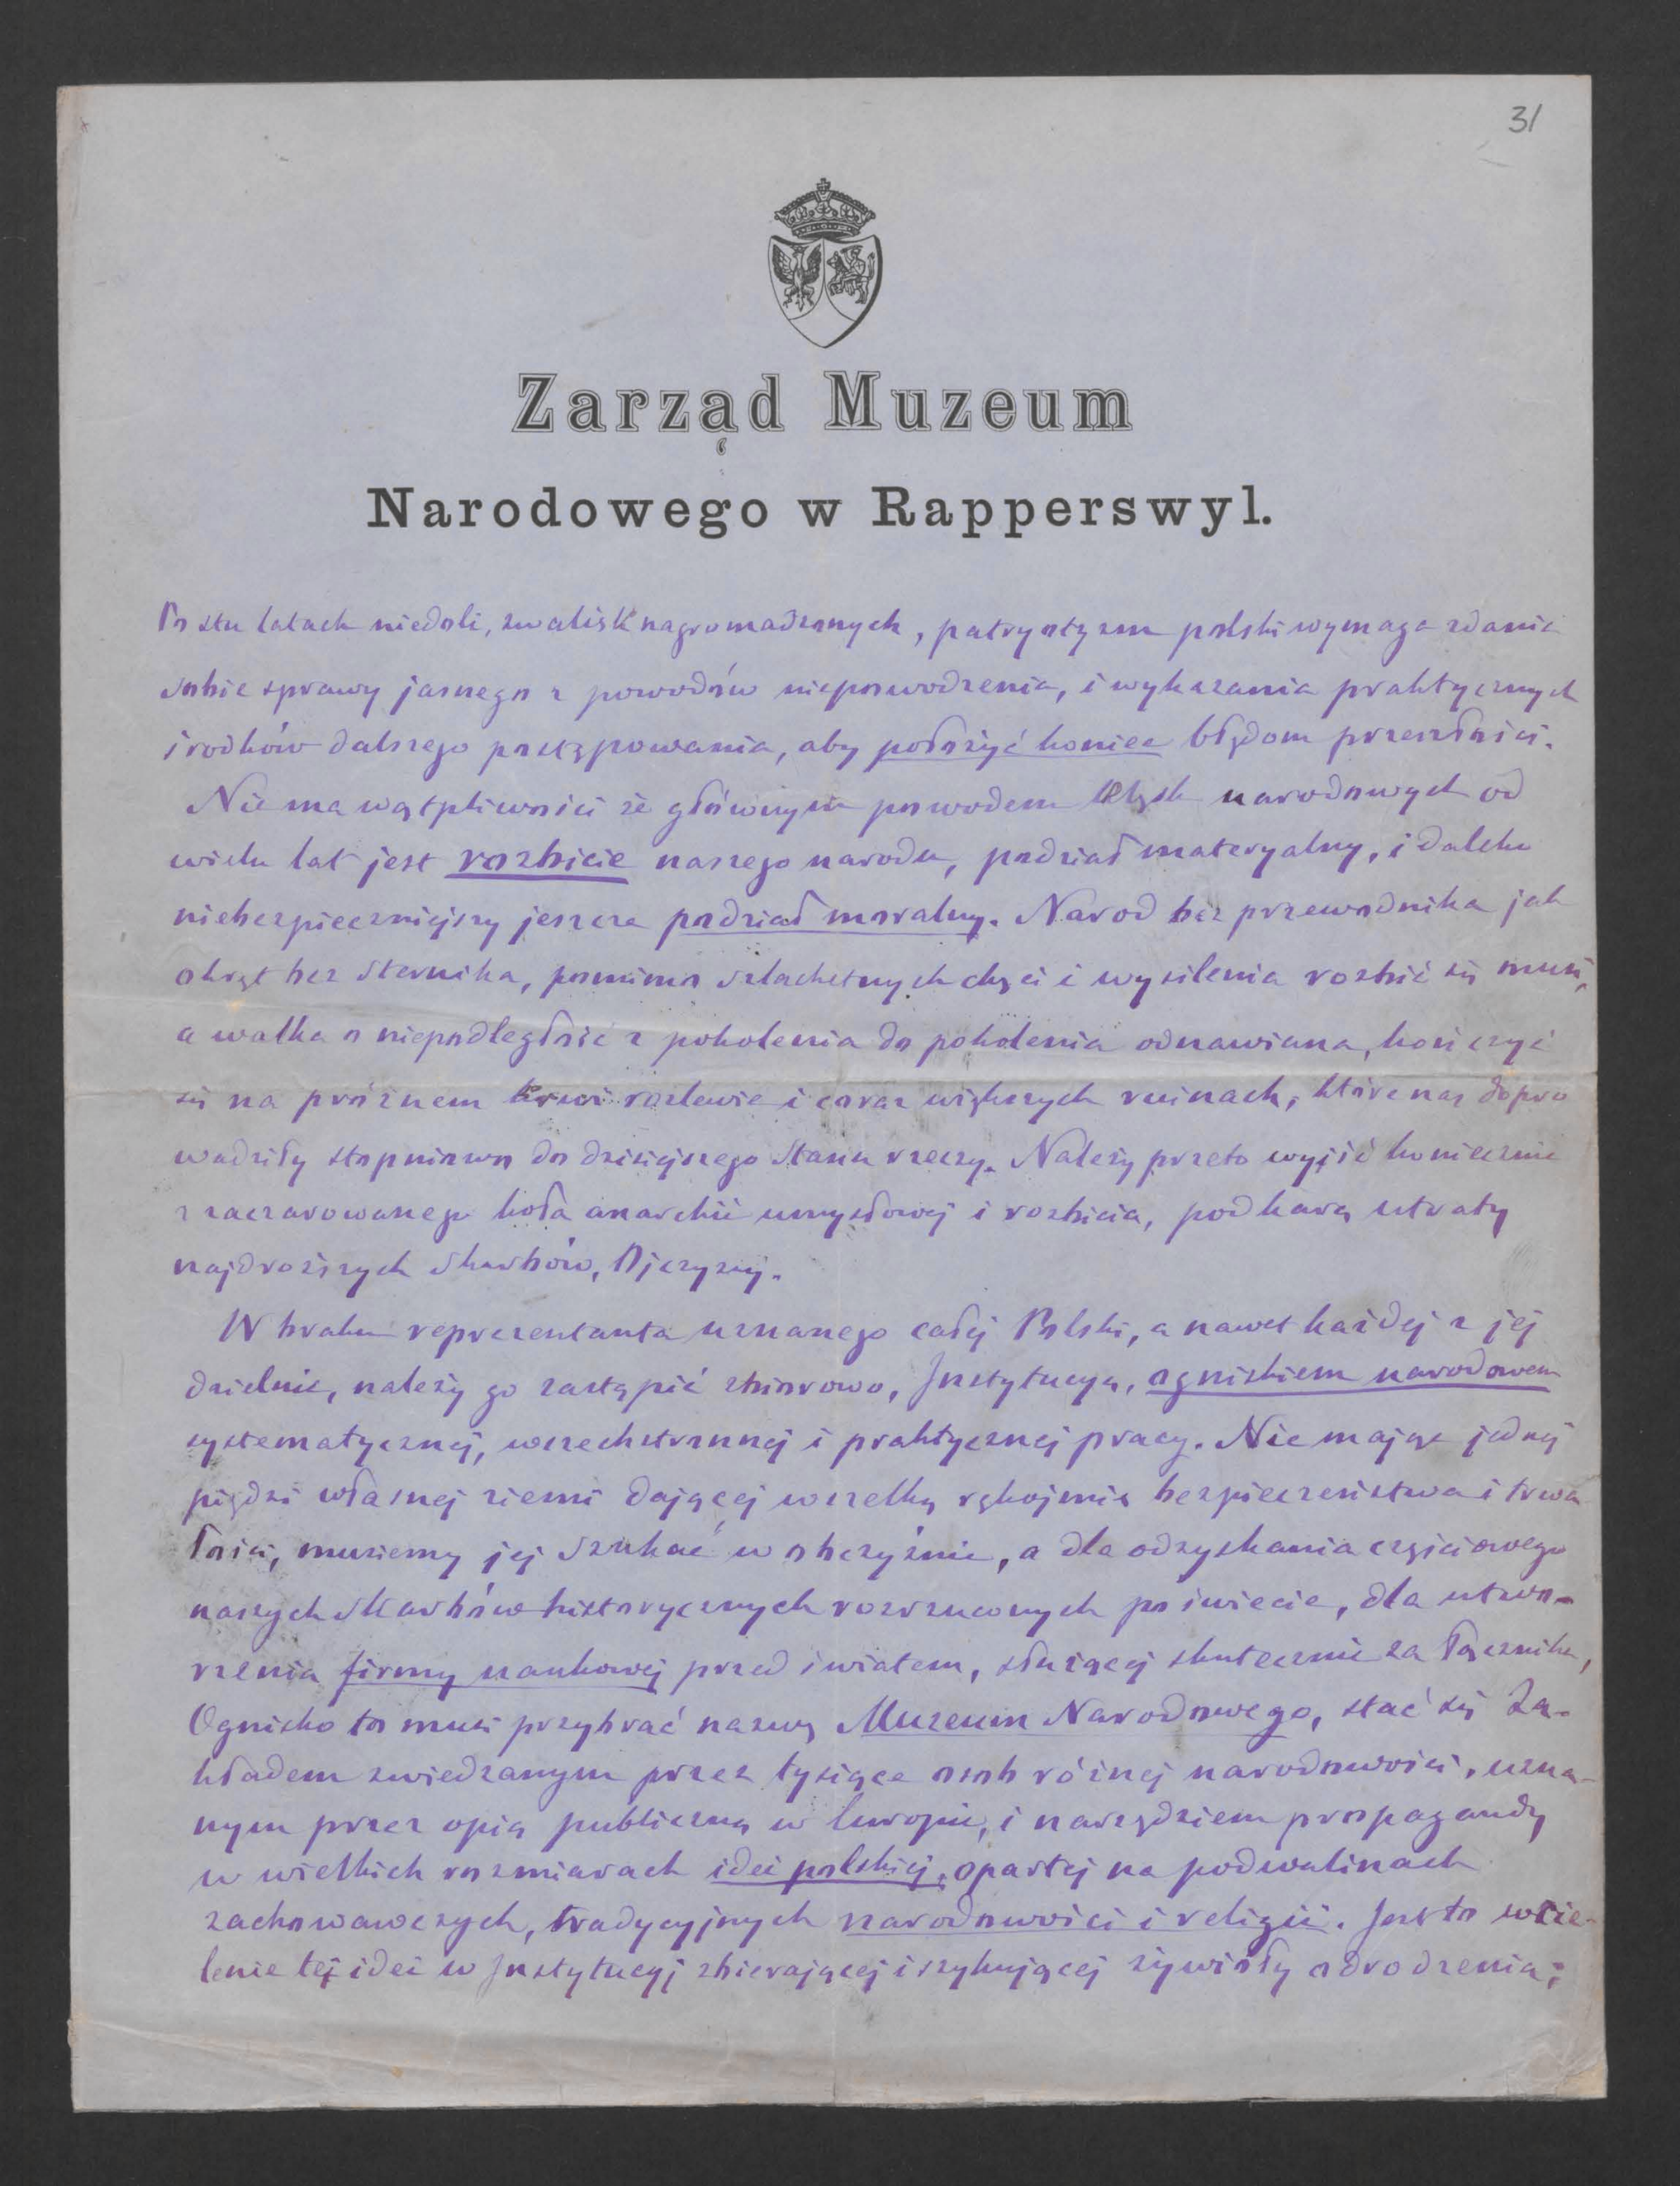 31
Zarząd Muzeum
Narodowego w Rapperswyl.
Po stu latach niedoli, zwalisk nagromadzonych, patryotyzm polski wymaga zdania
sobie sprawy jasnego z powodów niepowodzenia, i wykazania praktycznych
środków dalszego postępowania, aby położyć koniec błędom przeszłości.
Nie ma wątpliwości że głównym powodem klęsk narodowych od
wielu lat jest rozbicie naszego narodu, podział materyalny, i daleko
niebezpieczniejszy jeszcze podział moralny. Naród bez przewodnika jak
okręt bez sternika, pomimo szlachetnych chęci i wysilenia rozbić się musi,
a walka o niepodległość z pokolenia do pokolenia odnawiana, kończyć
się na próżnem krwi rozlewie i coraz większych ruinach, które nas dopro
wadziły stopniowo do dzisiejszego stanu rzeczy. Należy przeto wyjść koniecznie
z zaczarowanego koła anarchii umysłowej i rozbicia, pod karą utraty
najdroższych skarbów, Ojczyzny.
W braku reprezentanta uznanego całej Polski, a nawet każdej z jej
dzielnic, należy go zastąpić zbiorowo, Instytucyą, ogniskiem narodowem
systematycznej, wszechstronnej i praktycznej pracy. Nie mając jednej
piędzi własnej ziemi dającej wszelką rękojmię bezpieczeństwa i trwa
łości, musiemy jej szukać w obczyźnie, a dla odzyskania częściowego
naszych skarbów historycznych rozrzuconych po świecie, dla utwo-
rzenia firmy naukowej przed światem, służącej skutecznie za łącznika,
Ognisko to musi przybrać nazwę Muzeum Narodowego, stać się Za-
kładem zwiedzanym przez tysiące osób różnej narodowości, uzna-
nym przez opią publiczną w Europie, i narzędziem propagandy
w wielkich rozmiarach idei polskiej, opartej na podwalinach
zachowawczych, tradycyjnych narodowości i religii. Jest to wcie-
lenie tej idei w Instytucyj zbierającej i szykującej żywioły odrodzenia;